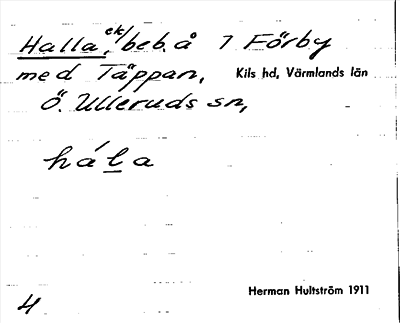 Halla, ek/beb. å 7 Förby
med Täppan, Kils hd, Värmlands län
Ö. Ulleruds sn,
há l̲a
Herman Hultström 1911
4